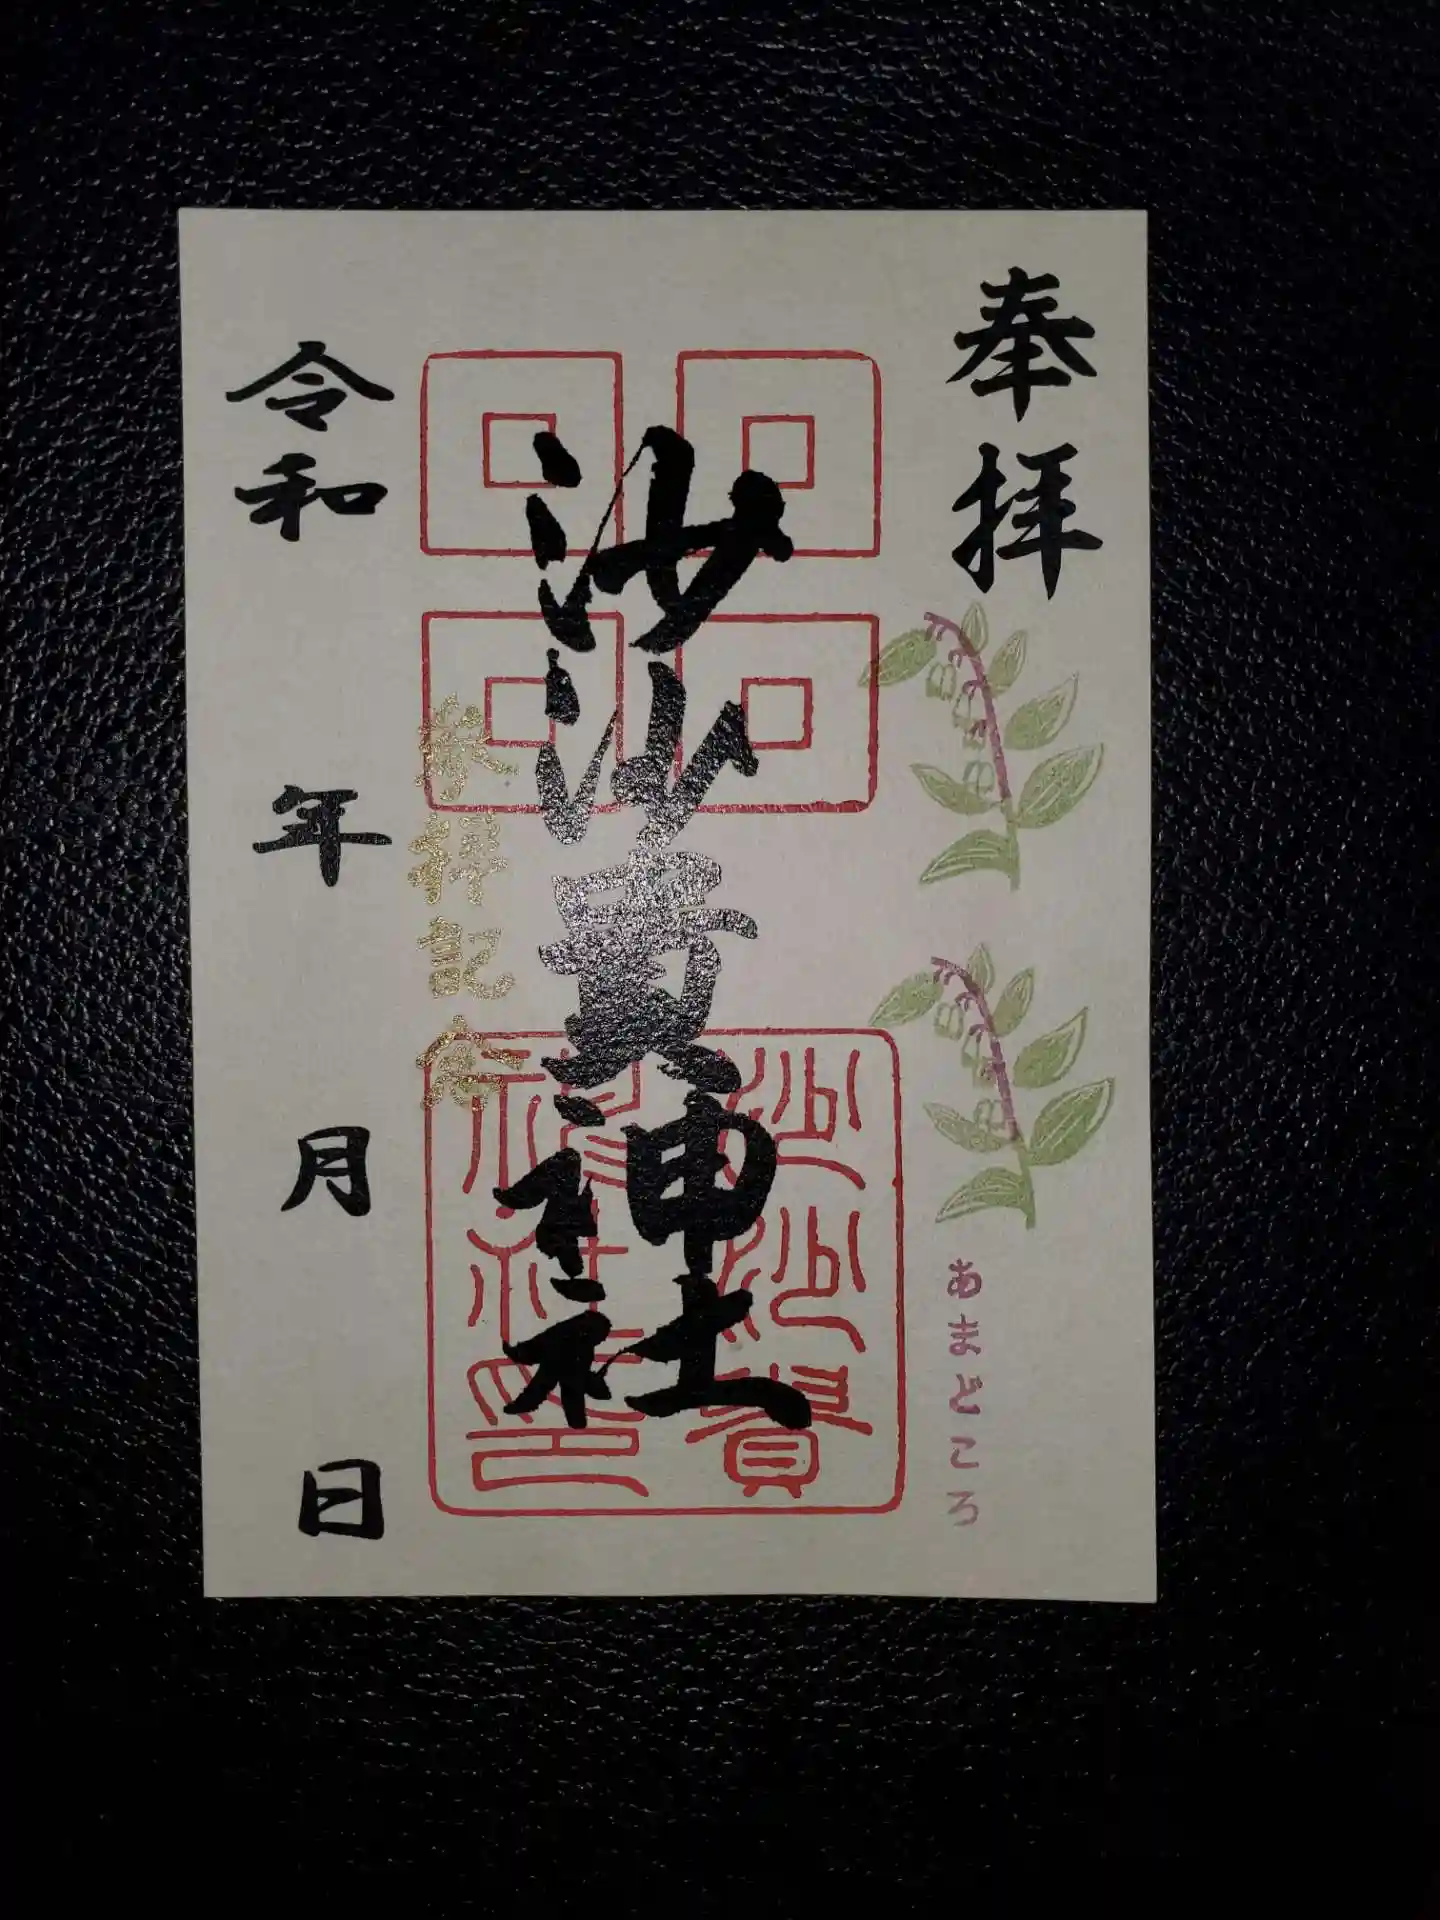 奉拝
あまどころ
沙沙貴神社
沙沙貴
神社印
参拝記念
令和 年 月 日